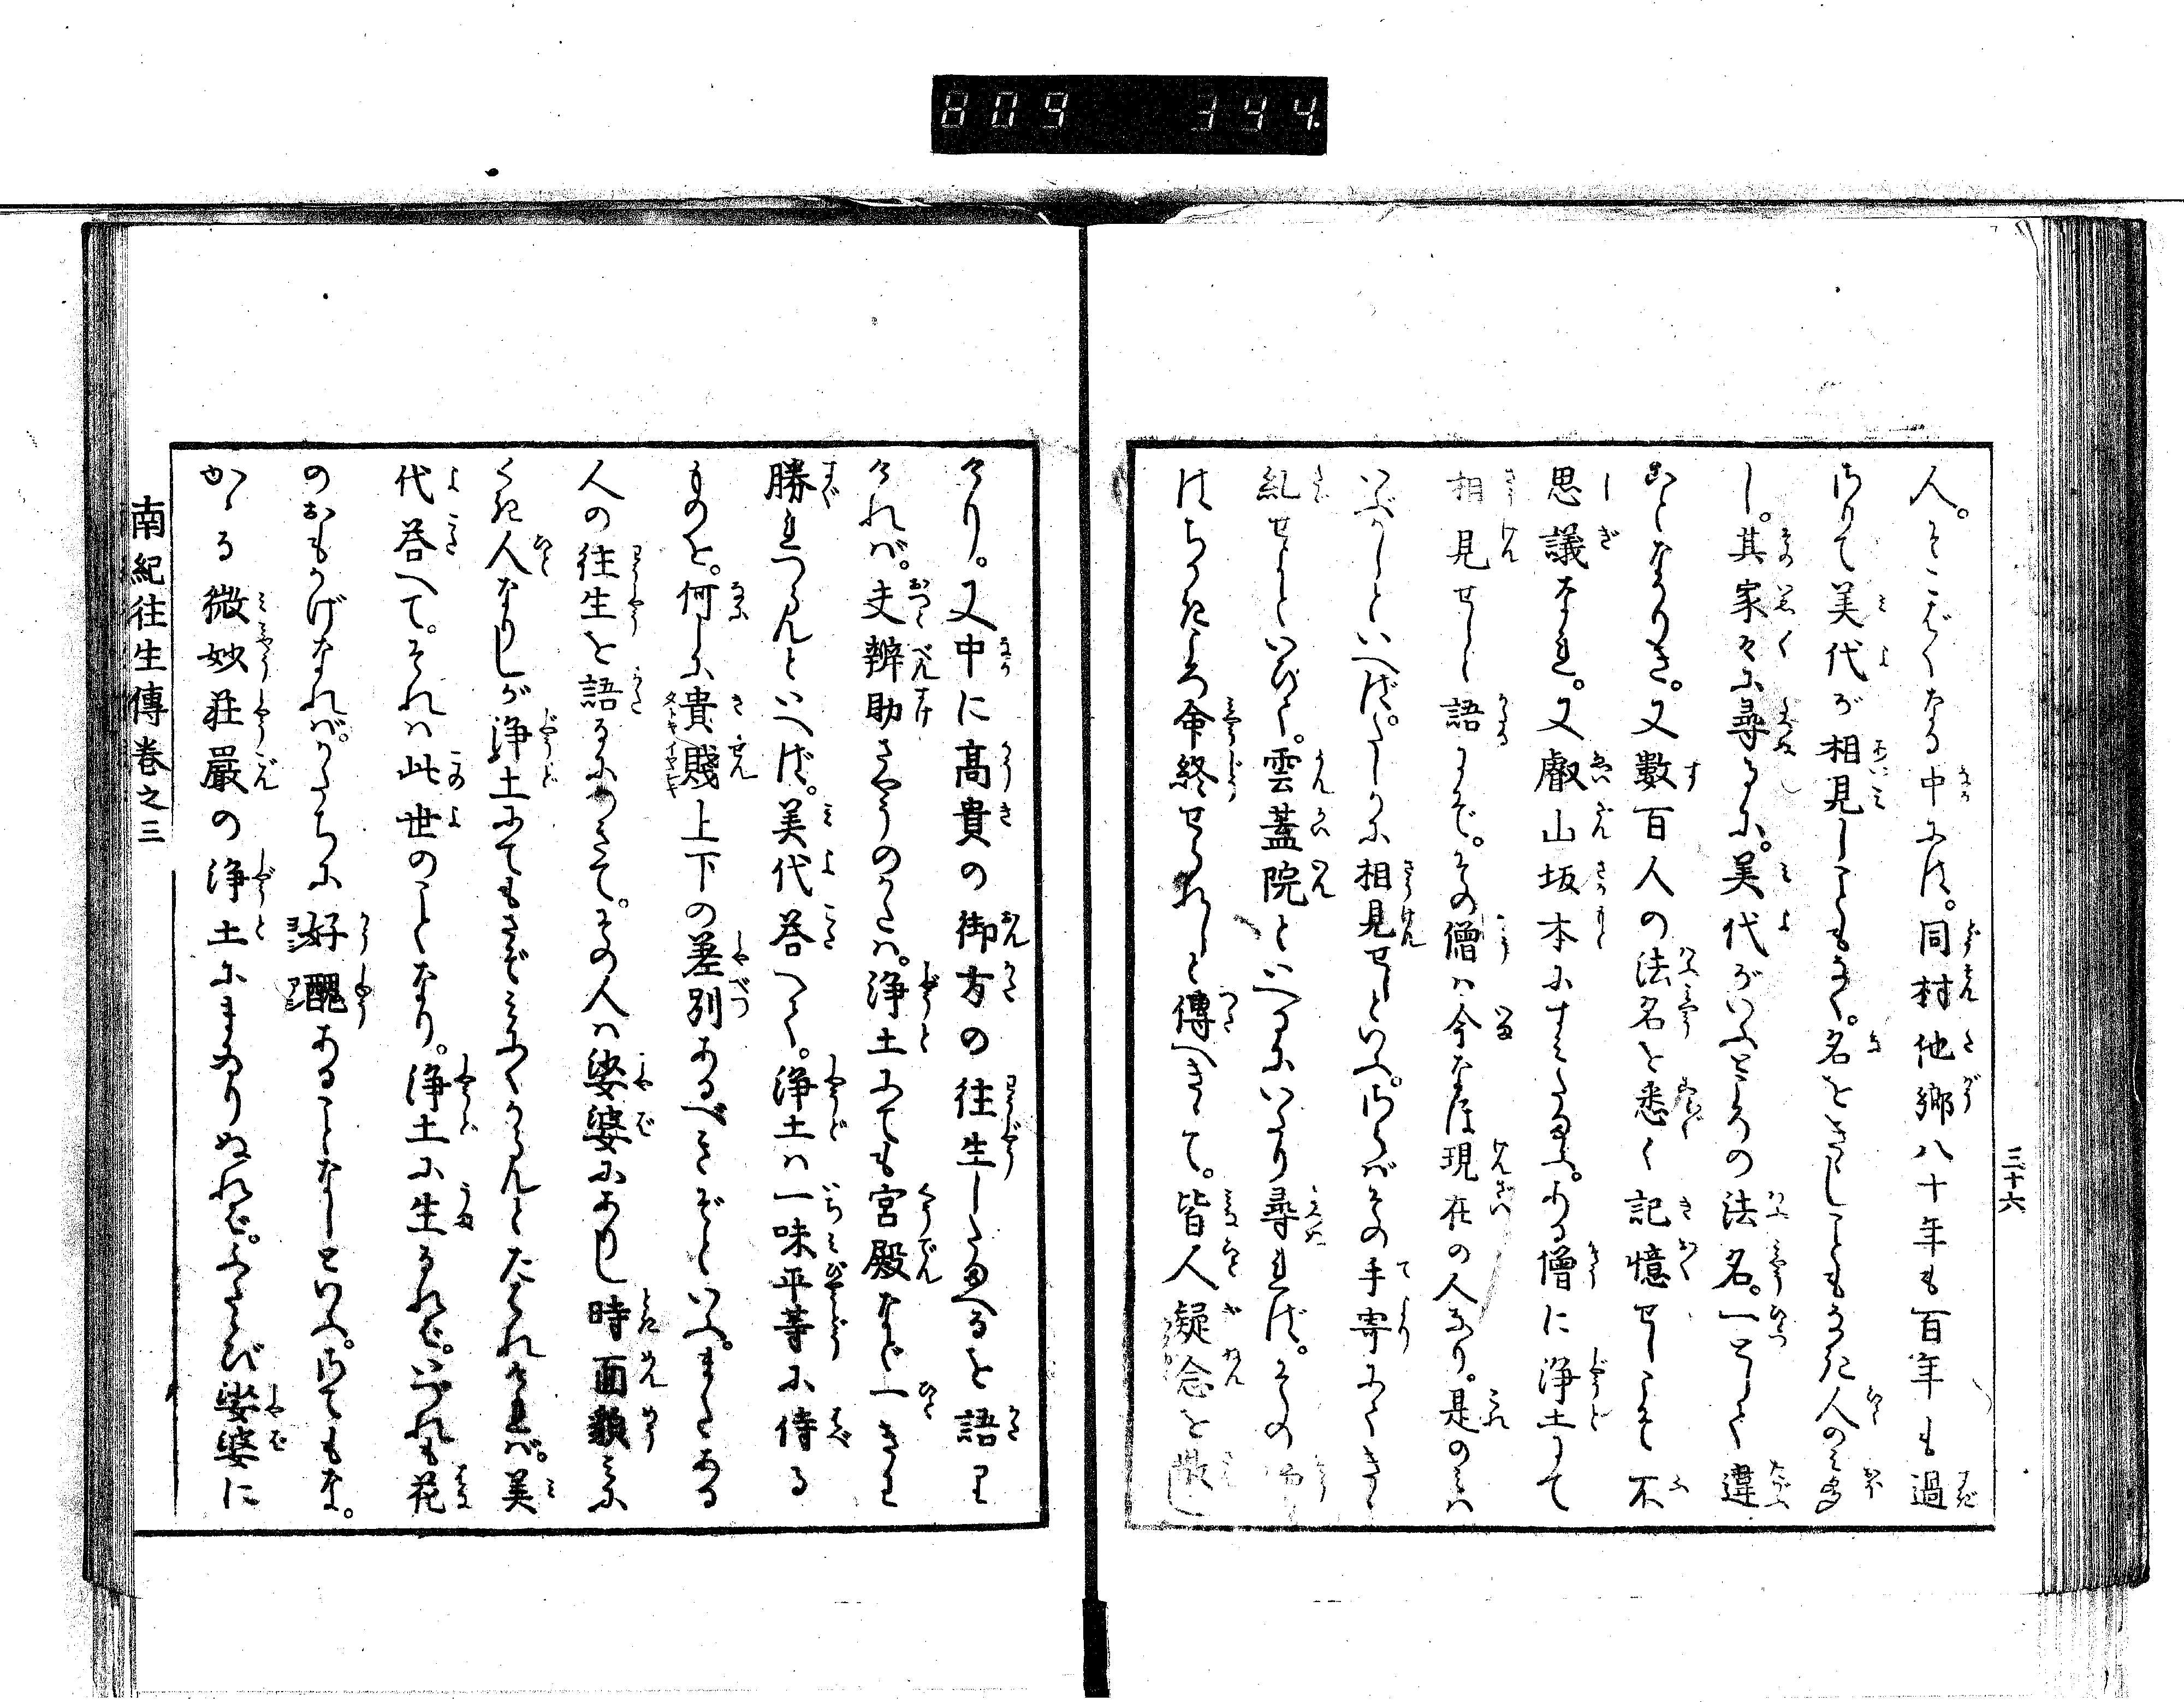 809 344
人。そこばくなる中には。同村他郷八十年も百年も過
さりて美代が相見しこともなく。名をきゝしこともなき人のみ多
し。其家々に尋るに。美代がいふところの法名。一として違
ことなかりき。又数百人の法名を悉く記憶せしこそ不
思議なれ。又叡山坂本にすみたまふ。ある僧に浄土にて
相見せしと語るにぞ。その僧は今なほ現在の人なり。是のみは
いぶかしといへば。たしかに相見せしといふ。さらばその手寄にくきゝ
糺せよといひて。雲蓋院といへるにいたり尋れば。その
はちかきころ命終せられしと傳へきゝて。皆人疑念を散し
けり。又中に高貴の御方の往生したまへるを語り
ければ。夫辨助さやうのかたは。浄土にても宮殿など一きは
勝れつらんといへば。美代答へて。浄土は一味平等に侍る
ものを。何しに貴賤上下の差別あるべきぞといふ。またある
人の往生を語るにあはせて。その人は娑婆にありし時面貌みに
くき人なりしが浄土にてもさぞみにくからんとたはれければ。美
代答へて。それは此世のことなり。浄土に生るれば。いづれも花
のおもかげなれば。かたちに好醜あることなしといふ。さてもな。
かゝる微妙荘嚴の浄土にまゐりぬれば。ふたゝび娑婆に
南紀往生傳巻之三
三十六